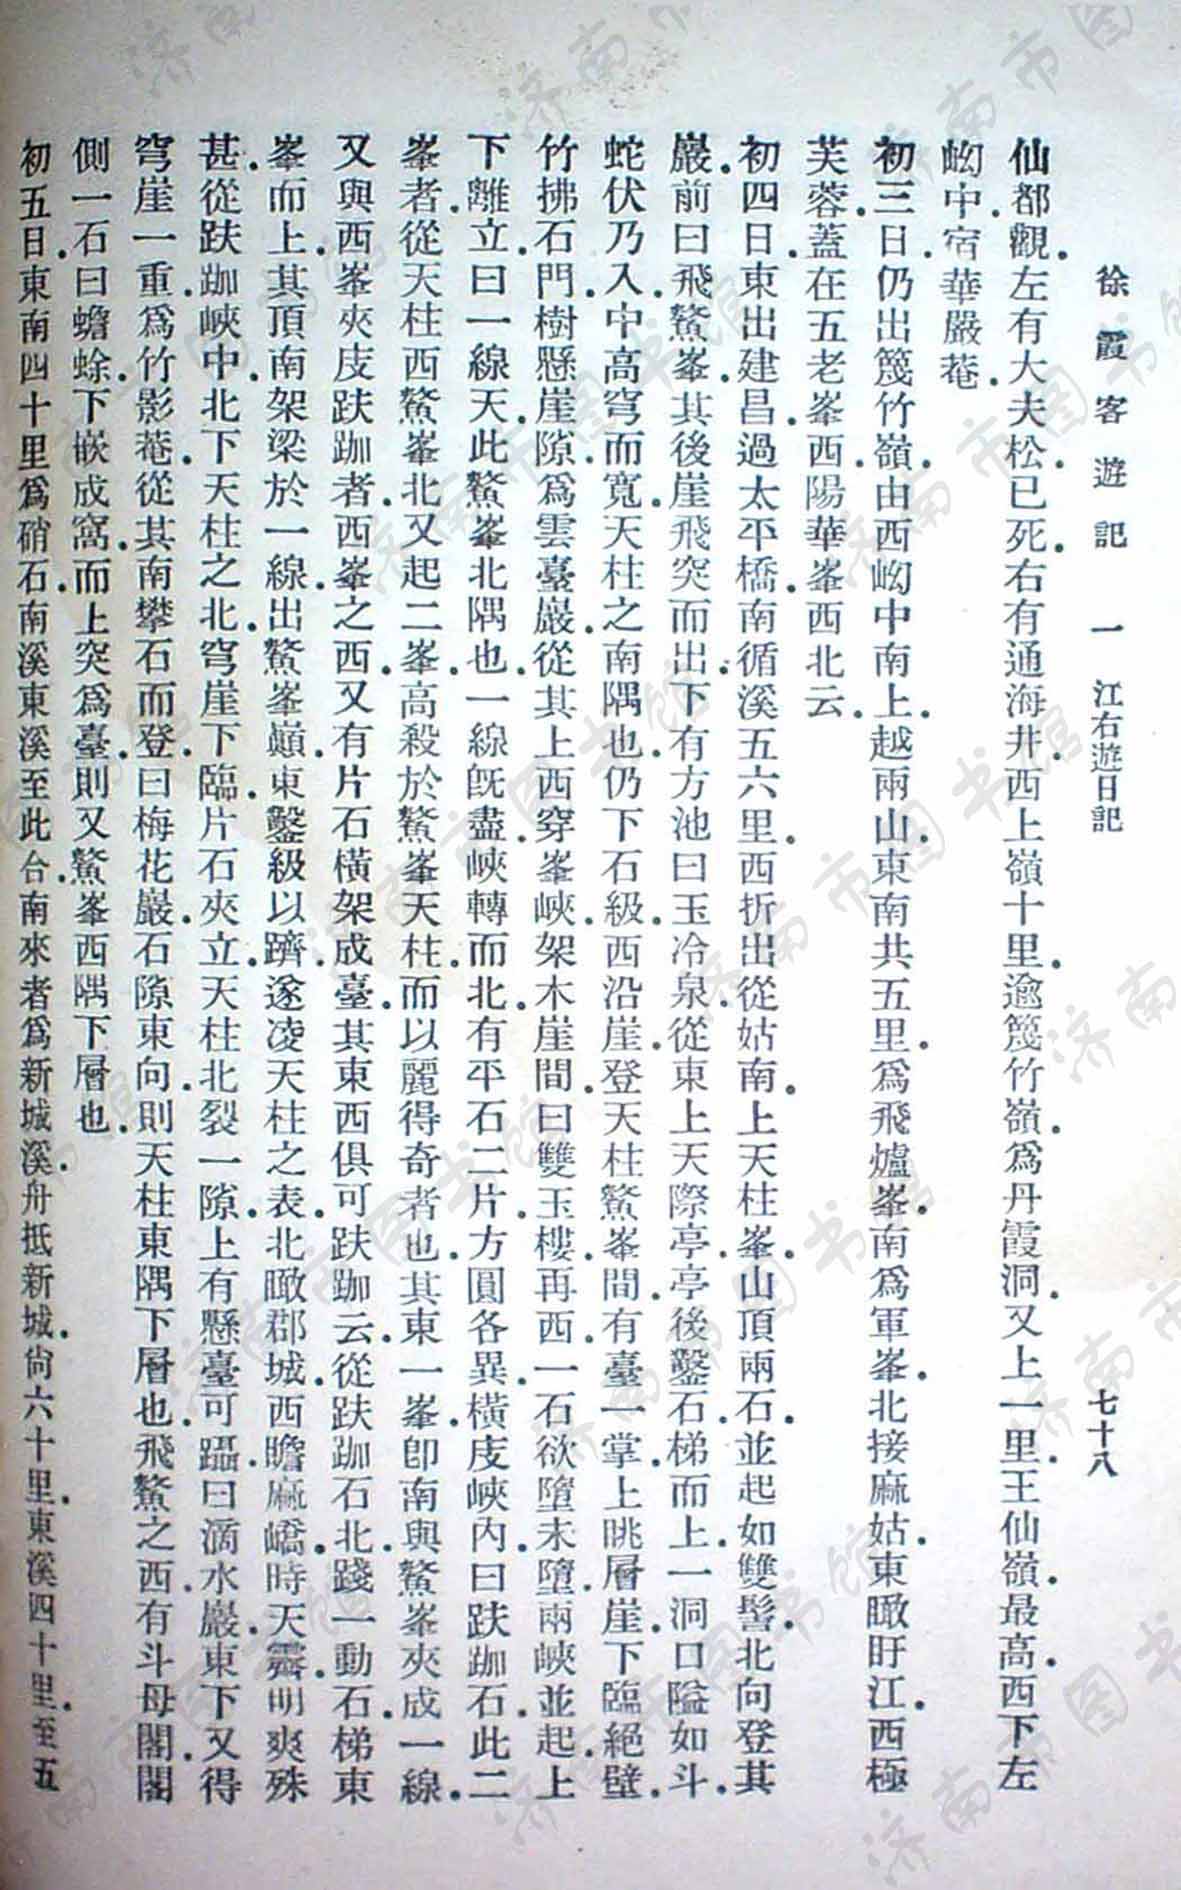 徐霞客遊記 一 江右遊日記 七十八
仙都觀．左有大夫松．已死．右有通海井．西上嶺十里．逾篾竹嶺．爲丹霞洞．又上一里．王仙嶺最高．西下左
㘭中．宿華嚴菴．
初三日．仍出篾竹嶺．由西㘭中南上．越兩山．東南共五里．爲飛爐峯．南爲軍峯．北接麻姑．東瞰盱江．西極
芙蓉．蓋在五老峯西．陽華峯西北云．
初四日．東出建昌．過太平橋．南循溪五六里．西折出從姑南．上天柱峯．山頂兩石．並起如雙髻．北向登其
巖．前曰飛鰲峯．其後崖飛突而出．下有方池曰玉冷泉．從東上天際亭．亭後鑿石梯而上．一洞口隘如斗．
蛇伏乃入．中高穹而寬．天柱之南隅也．仍下石級．西沿崖．登天柱鰲峯間．有臺一掌．上眺層崖．下臨絕壁．
竹拂石門．樹懸崖隙．爲雲臺巖．從其上西穿峯峽．架木崖間．曰雙玉樓．再西．一石欲墮未墮．兩峽並起．上
下離立．曰一線天．此鰲峯北隅也．一線旣盡．峽轉而北．有平石二片．方圓各異．橫庋峽內．曰趺跏石．此二
峯者．從天柱西鰲峯北．又起二峯．高殺於鰲峯天柱．而以麗得奇者也．其東一峯．卽南與鰲峯夾成一線．
又與西峯夾庋趺跏者．西峯之西．又有片石橫架成臺．其東西俱可趺跏云．從趺跏石北．踐一動石．梯東
峯而上．其頂南架梁於一線．出鰲峯巔．東鑿級以躋．遂凌天柱之表．北瞰郡城．西瞻麻嶠．時天霽明爽殊
甚．從趺跏峽中．北下天柱之北．穹崖下臨．片石夾立．天柱北裂一隙．上有懸臺可躡．曰滴水巖．東下又得
穹崖一重．爲竹影菴．從其南攀石而登．曰梅花巖．石隙東向．則天柱東隅下層也．飛鰲之西．有斗母閣．閣
側一石曰蟾蜍．下嵌成窩．而上突爲臺．則又鰲峯西隅下層也．
初五日．東南四十里爲硝石．南溪東溪至此合．南來者爲新城溪．舟抵新城．尙六十里．東溪四十里．至五
济南市图书馆